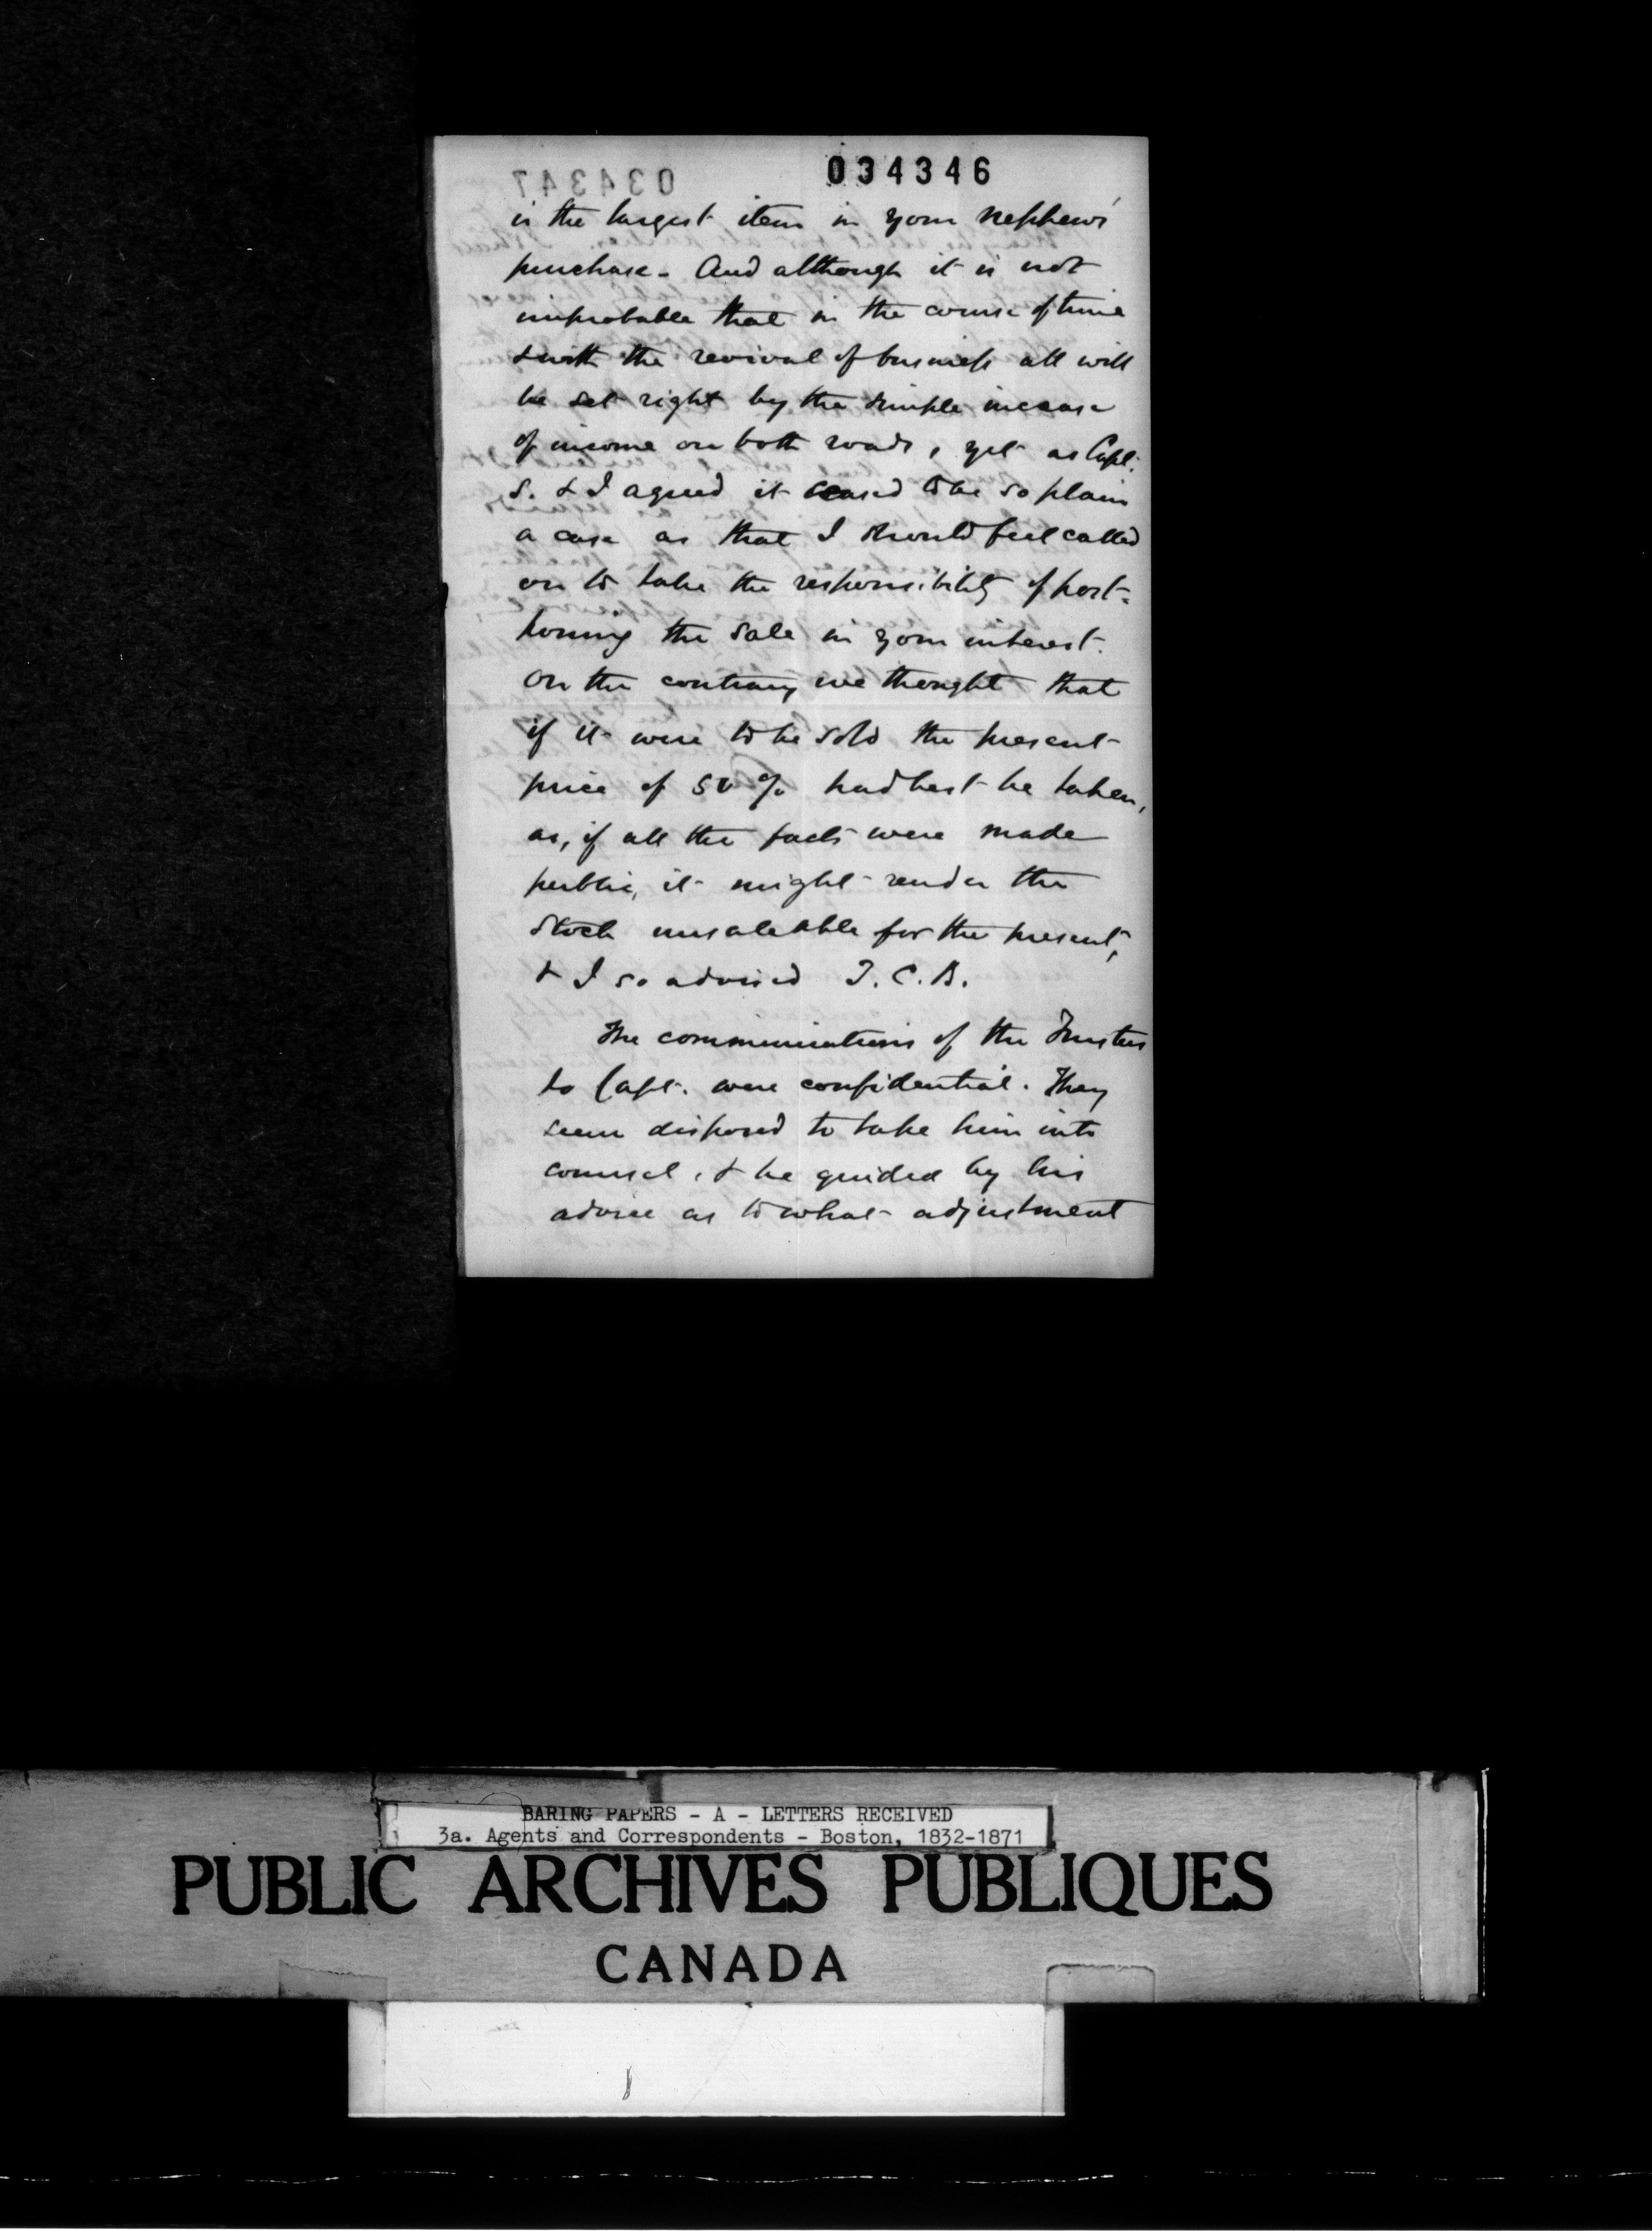 034346
034347
is the largest item in your nephews'
purchase - And although it is not
improbable that in the course of time
& with the revival of business all will
be set right by the simple increase
of income on both roads, yet as Capt.
S. & I agreed it ceased to be so plain
a case as that I should feel called
on to take the responsibility of post-
poning the sale in your interest.
On the contrary we thought that
if it were to be sold the present
price of 50 % had best be taken,
as, if all the facts were made
public, it might render the
Stock unsaleable for the present,
& I so advised T. C. B.
The communications of the Trustees
to Capt. were confidential. They
seem disposed to take him into
counsel, & be guided by his
advice as to what adjustment
BARING PAPERS - A - LETTERS RECEIVED
3a. Agents and Correspondents - Boston, 1832-1871
PUBLIC ARCHIVES PUBLIQUES
CANADA